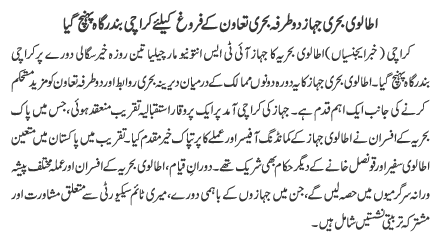 اطالوی بحری جہاز دو طرفہ بحری تعاون کے فروغ کیلئے کراچی بندرگاہ پہنچ گیا
کراچی (خبر ایجنسیاں) اطالوی بحریہ کا جہاز آئی ٹی ایس انتونیو مارچیلیا تین روزہ خیر سگالی دورے پر کراچی
بندرگاہ پہنچ گیا۔ اطالوی بحری جہاز کا یہ دورہ دونوں ممالک کے درمیان دیرینہ بحری روابط اور دو طرفہ تعاون کو مزید مستحکم
کرنے کی جانب ایک اہم قدم ہے۔ جہاز کی کراچی آمد پر ایک پروقار استقبالیہ تقریب منعقد ہوئی، جس میں پاک
بحریہ کے افسران نے اطالوی جہاز کے کمانڈنگ آفیسر اور عملے کا پرتپاک خیر مقدم کیا۔ تقریب میں پاکستان میں متعین
اطالوی سفیر اور قونصل خانے کے دیگر حکام بھی شریک تھے۔ دوران قیام، اطالوی بحریہ کے افسران اور عملہ مختلف پیشہ
ورانہ سرگرمیوں میں حصہ لیں گے، جن میں جہازوں کے باہمی دورے، میری ٹائم سیکیورٹی سے متعلق مشاورت اور
مشترکہ تربیتی نشستیں شامل ہیں۔